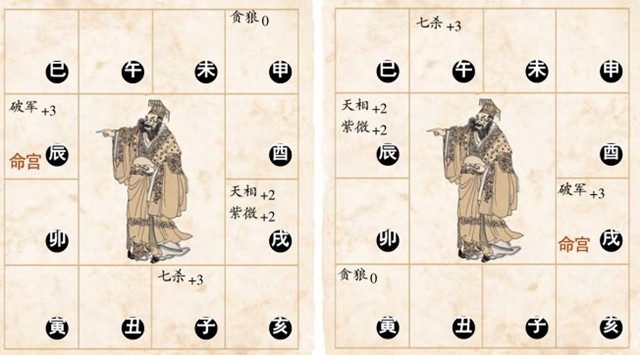 贪狼 0
巳 午 未 申
破军 +3
命宫 辰 酉
天相 +2
紫微 +2
卯 戌
七杀 +3
寅 丑 子 亥
七杀 +3
巳 午 未 申
天相 +2
紫微 +2
辰 酉
破军 +3
卯 命宫 戌
贪狼 0
寅 丑 子 亥